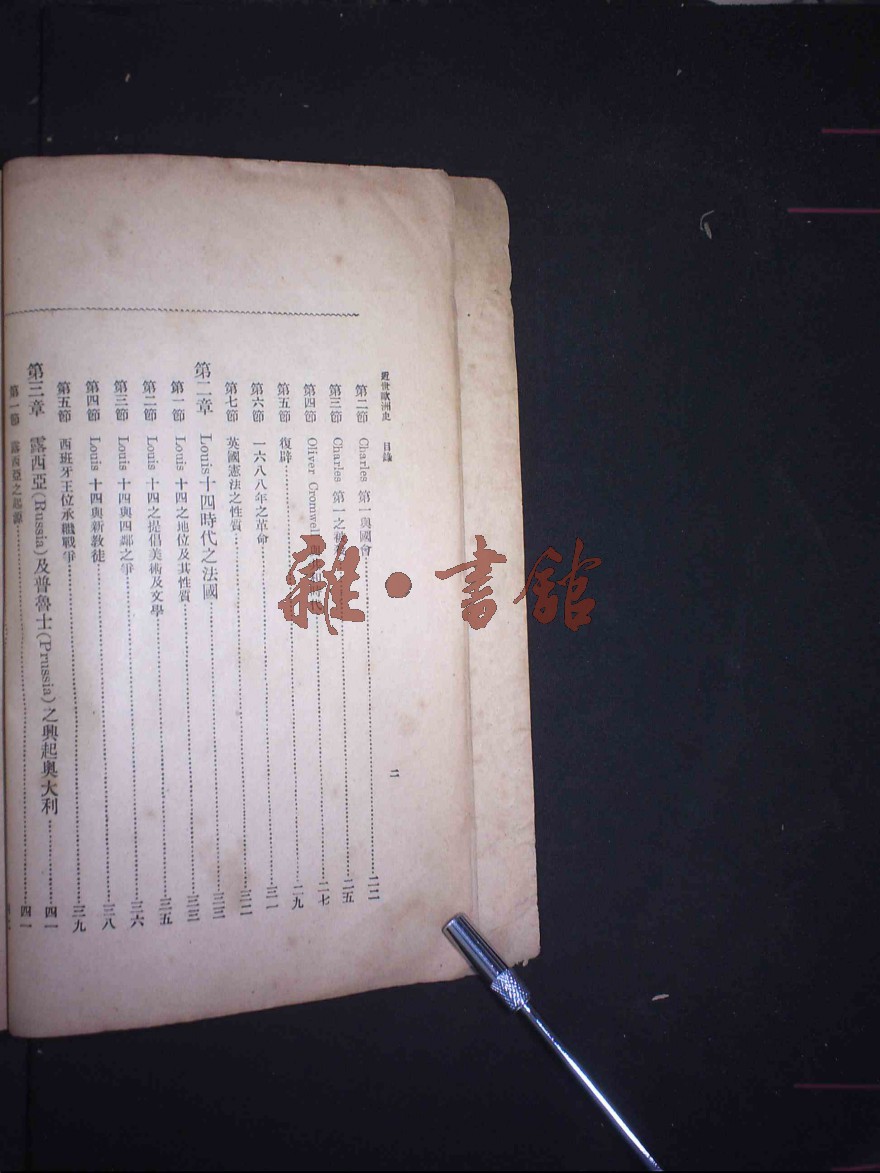 近世歐洲史 目錄 二
第二節 Charles 第一與國會 二二
第三節 Charles 第一之 二五
第四節 Oliver Cromwell 二七
第五節 復辟 二九
第六節 一六八八年之革命 三一
第七節 英國憲法之性質 三二
第二章 Louis 十四時代之法國 三三
第一節 Louis 十四之地位及其性質 三三
第二節 Louis 十四之提倡美術及文學 三五
第三節 Louis 十四與四鄰之爭 三六
第四節 Louis 十四與新教徒 三八
第五節 西班牙王位承繼戰爭 三九
第三章 露西亞(Russia)及普魯士(Prussia)之興起奧大利 四一
第一節 露西亞之起源 四一
雜·書館